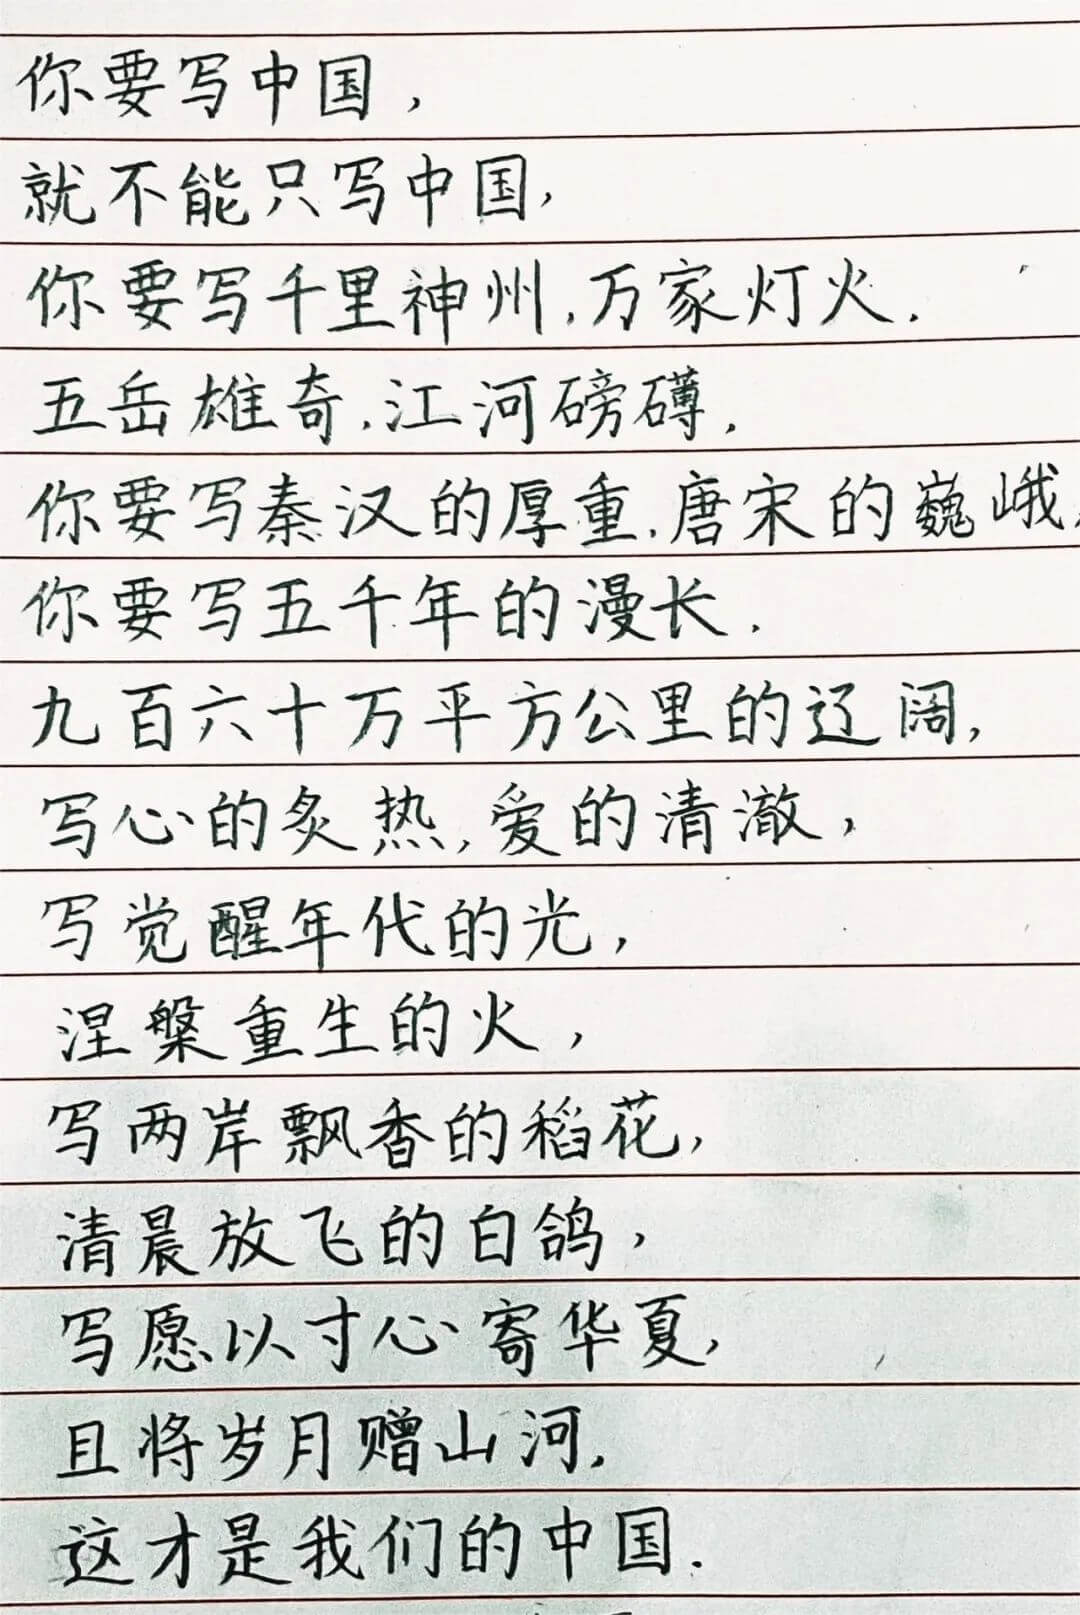 你要写中国，
就不能只写中国，
你要写千里神州，万家灯火，
五岳雄奇，江河磅礴，
你要写秦汉的厚重，唐宋的巍峨，
你要写五千年的漫长，
九百六十万平方公里的辽阔，
写心的炙热，爱的清澈，
写觉醒年代的光，
涅槃重生的火，
写两岸飘香的稻花，
清晨放飞的白鸽，
写愿以寸心寄华夏，
且将岁月赠山河，
这才是我们的中国.